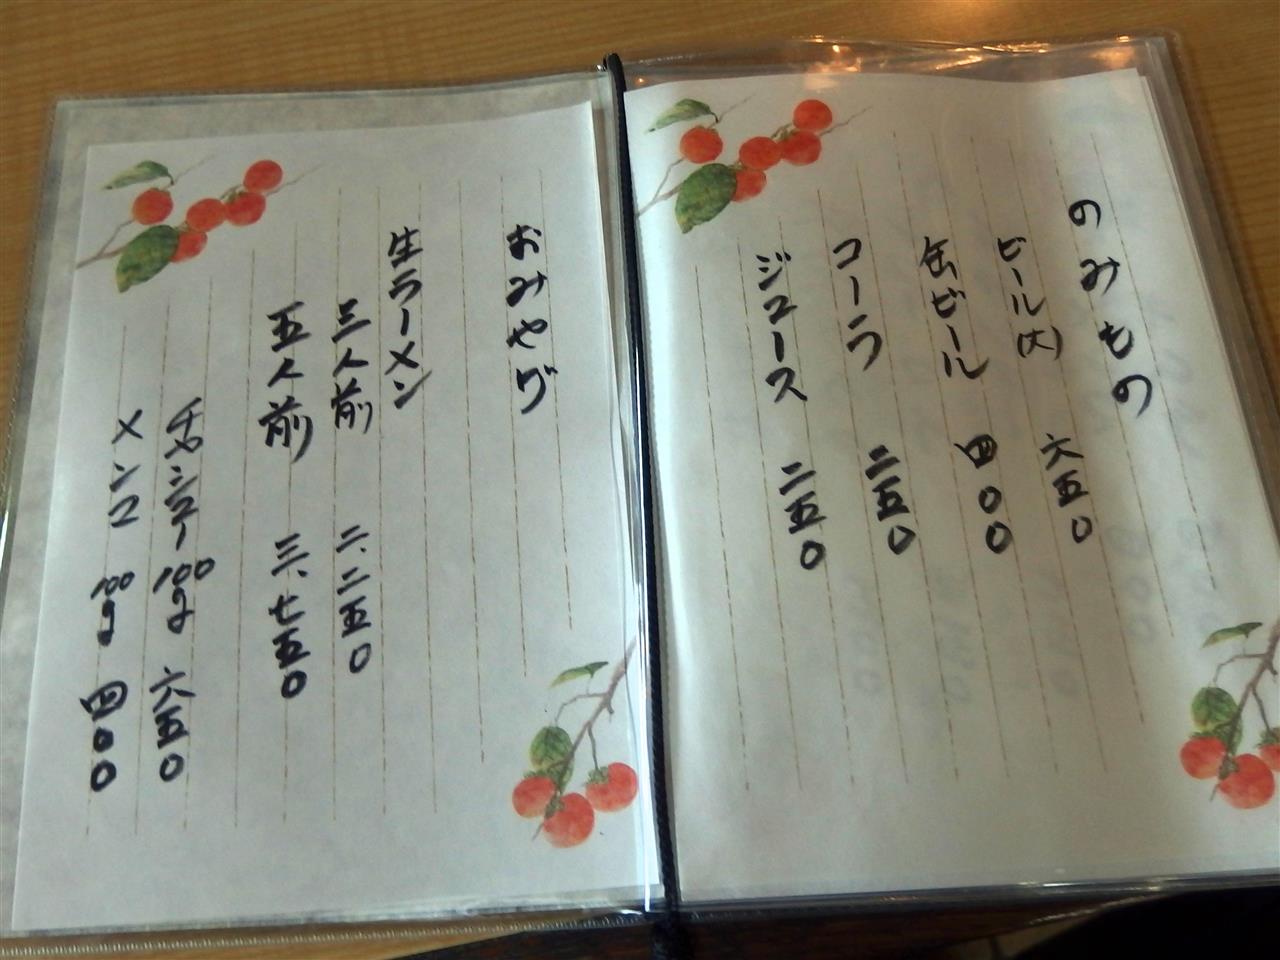 のみもの
ビール(大) 六五〇
缶ビール 四〇〇
コーラ 二五〇
ジュース 二五〇
おみやげ
生ラーメン
三人前 二、二五〇
五人前 三、七五〇
チャシュー 100g 六五〇
メンマ 100g 四〇〇